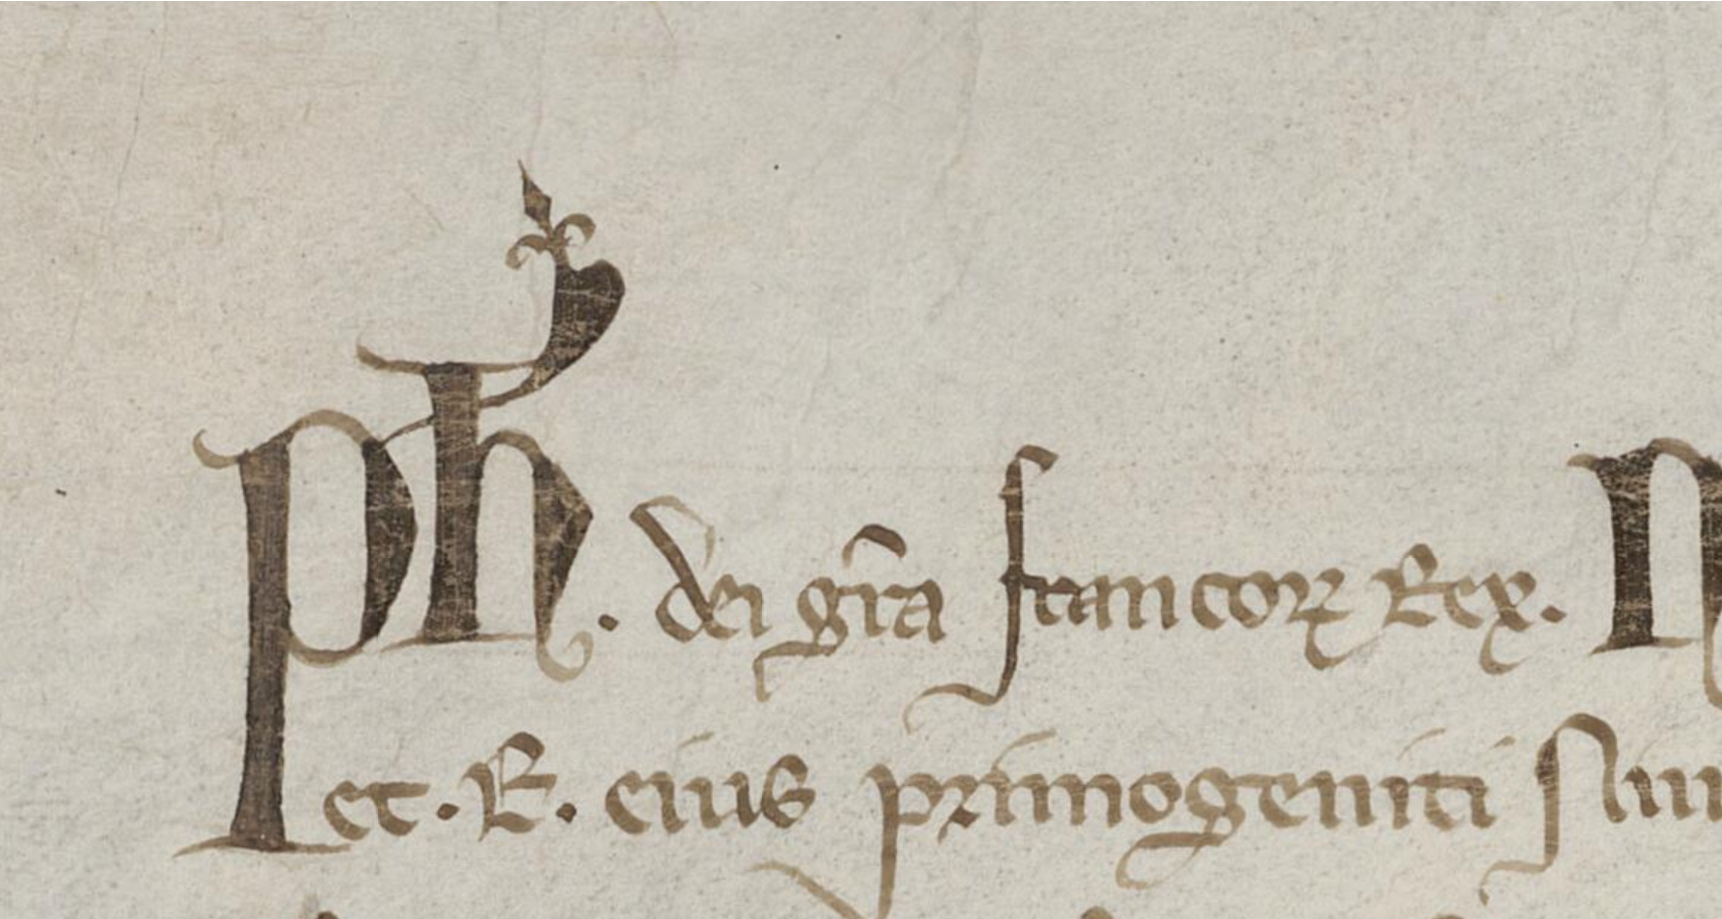 Ph. dei gr̄a francoꝝ Rex. N
et. E. eius primogeniti